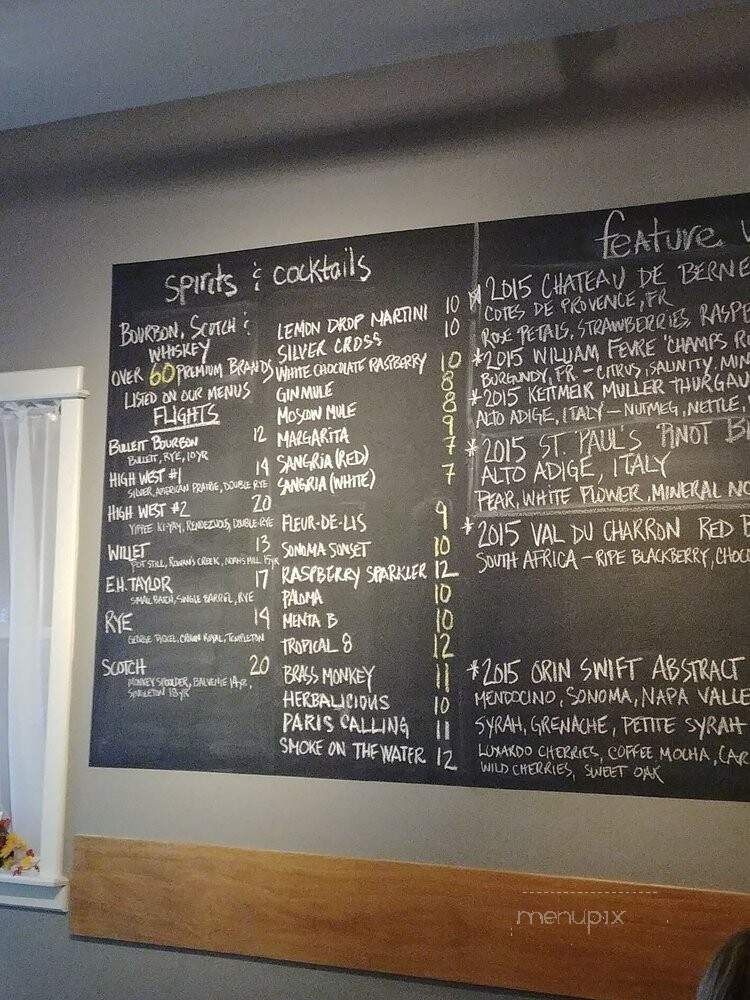 spirits & cocktails
BOURBON, SCOTCH &
WHISKEY
OVER 60 PREMIUM BRANDS
LISTED ON OUR MENUS
FLIGHTS
BULLEIT BOURBON 12
BULLEIT, RYE, 10YR
HIGH WEST #1 14
SILVER, AMERICAN PRAIRIE, DOUBLE RYE
HIGH WEST #2 20
YIPPEE KI-YAY, RENDEZVOUS, DOUBLE-RYE
WILLET 13
POT STILL, ROWAN'S CREEK, NOAH'S MILL 15YR
E.H. TAYLOR 17
SMALL BATCH, SINGLE BARREL, RYE
RYE 14
GEORGE DICKEL, CROWN ROYAL, TEMPLETON
SCOTCH 20
MONKEY SHOULDER, BALVENIE 14YR,
SINGLETON 18YR
LEMON DROP MARTINI 10
SILVER CROSS 10
WHITE CHOCOLATE RASPBERRY 10
GIN MULE 8
MOSCOW MULE 8
MARGARITA 9
SANGRIA (RED) 7
SANGRIA (WHITE) 7
FLEUR-DE-LIS 9
SONOMA SUNSET 10
RASPBERRY SPARKLER 12
PALOMA 10
MENTA B 10
TROPICAL 8 12
BRASS MONKEY 11
HERBALICIOUS 10
PARIS CALLING 11
SMOKE ON THE WATER 12
feature
2015 CHATEAU DE BERNE
COTES DE PROVENCE, FR
ROSE PETALS, STRAWBERRIES, RASPB
*2015 WILLIAM FEVRE 'CHAMPS R
BURGUNDY, FR. - CITRUS, SALINITY, MIN
*2015 KETTMEIR MULLER THURGAU
ALTO ADIGE, ITALY - NUTMEG, NETTLE,
*2015 ST. PAUL'S PINOT B
ALTO ADIGE, ITALY
PEAR, WHITE FLOWER, MINERAL NO
*2015 VAL DU CHARRON RED B
SOUTH AFRICA - RIPE BLACKBERRY, CHOC
*2015 ORIN SWIFT ABSTRACT
MENDOCINO, SONOMA, NAPA VALLE
SYRAH, GRENACHE, PETITE SYRAH
LUXARDO CHERRIES, COFFEE MOCHA, CAR
WILD CHERRIES, SWEET OAK
menupix